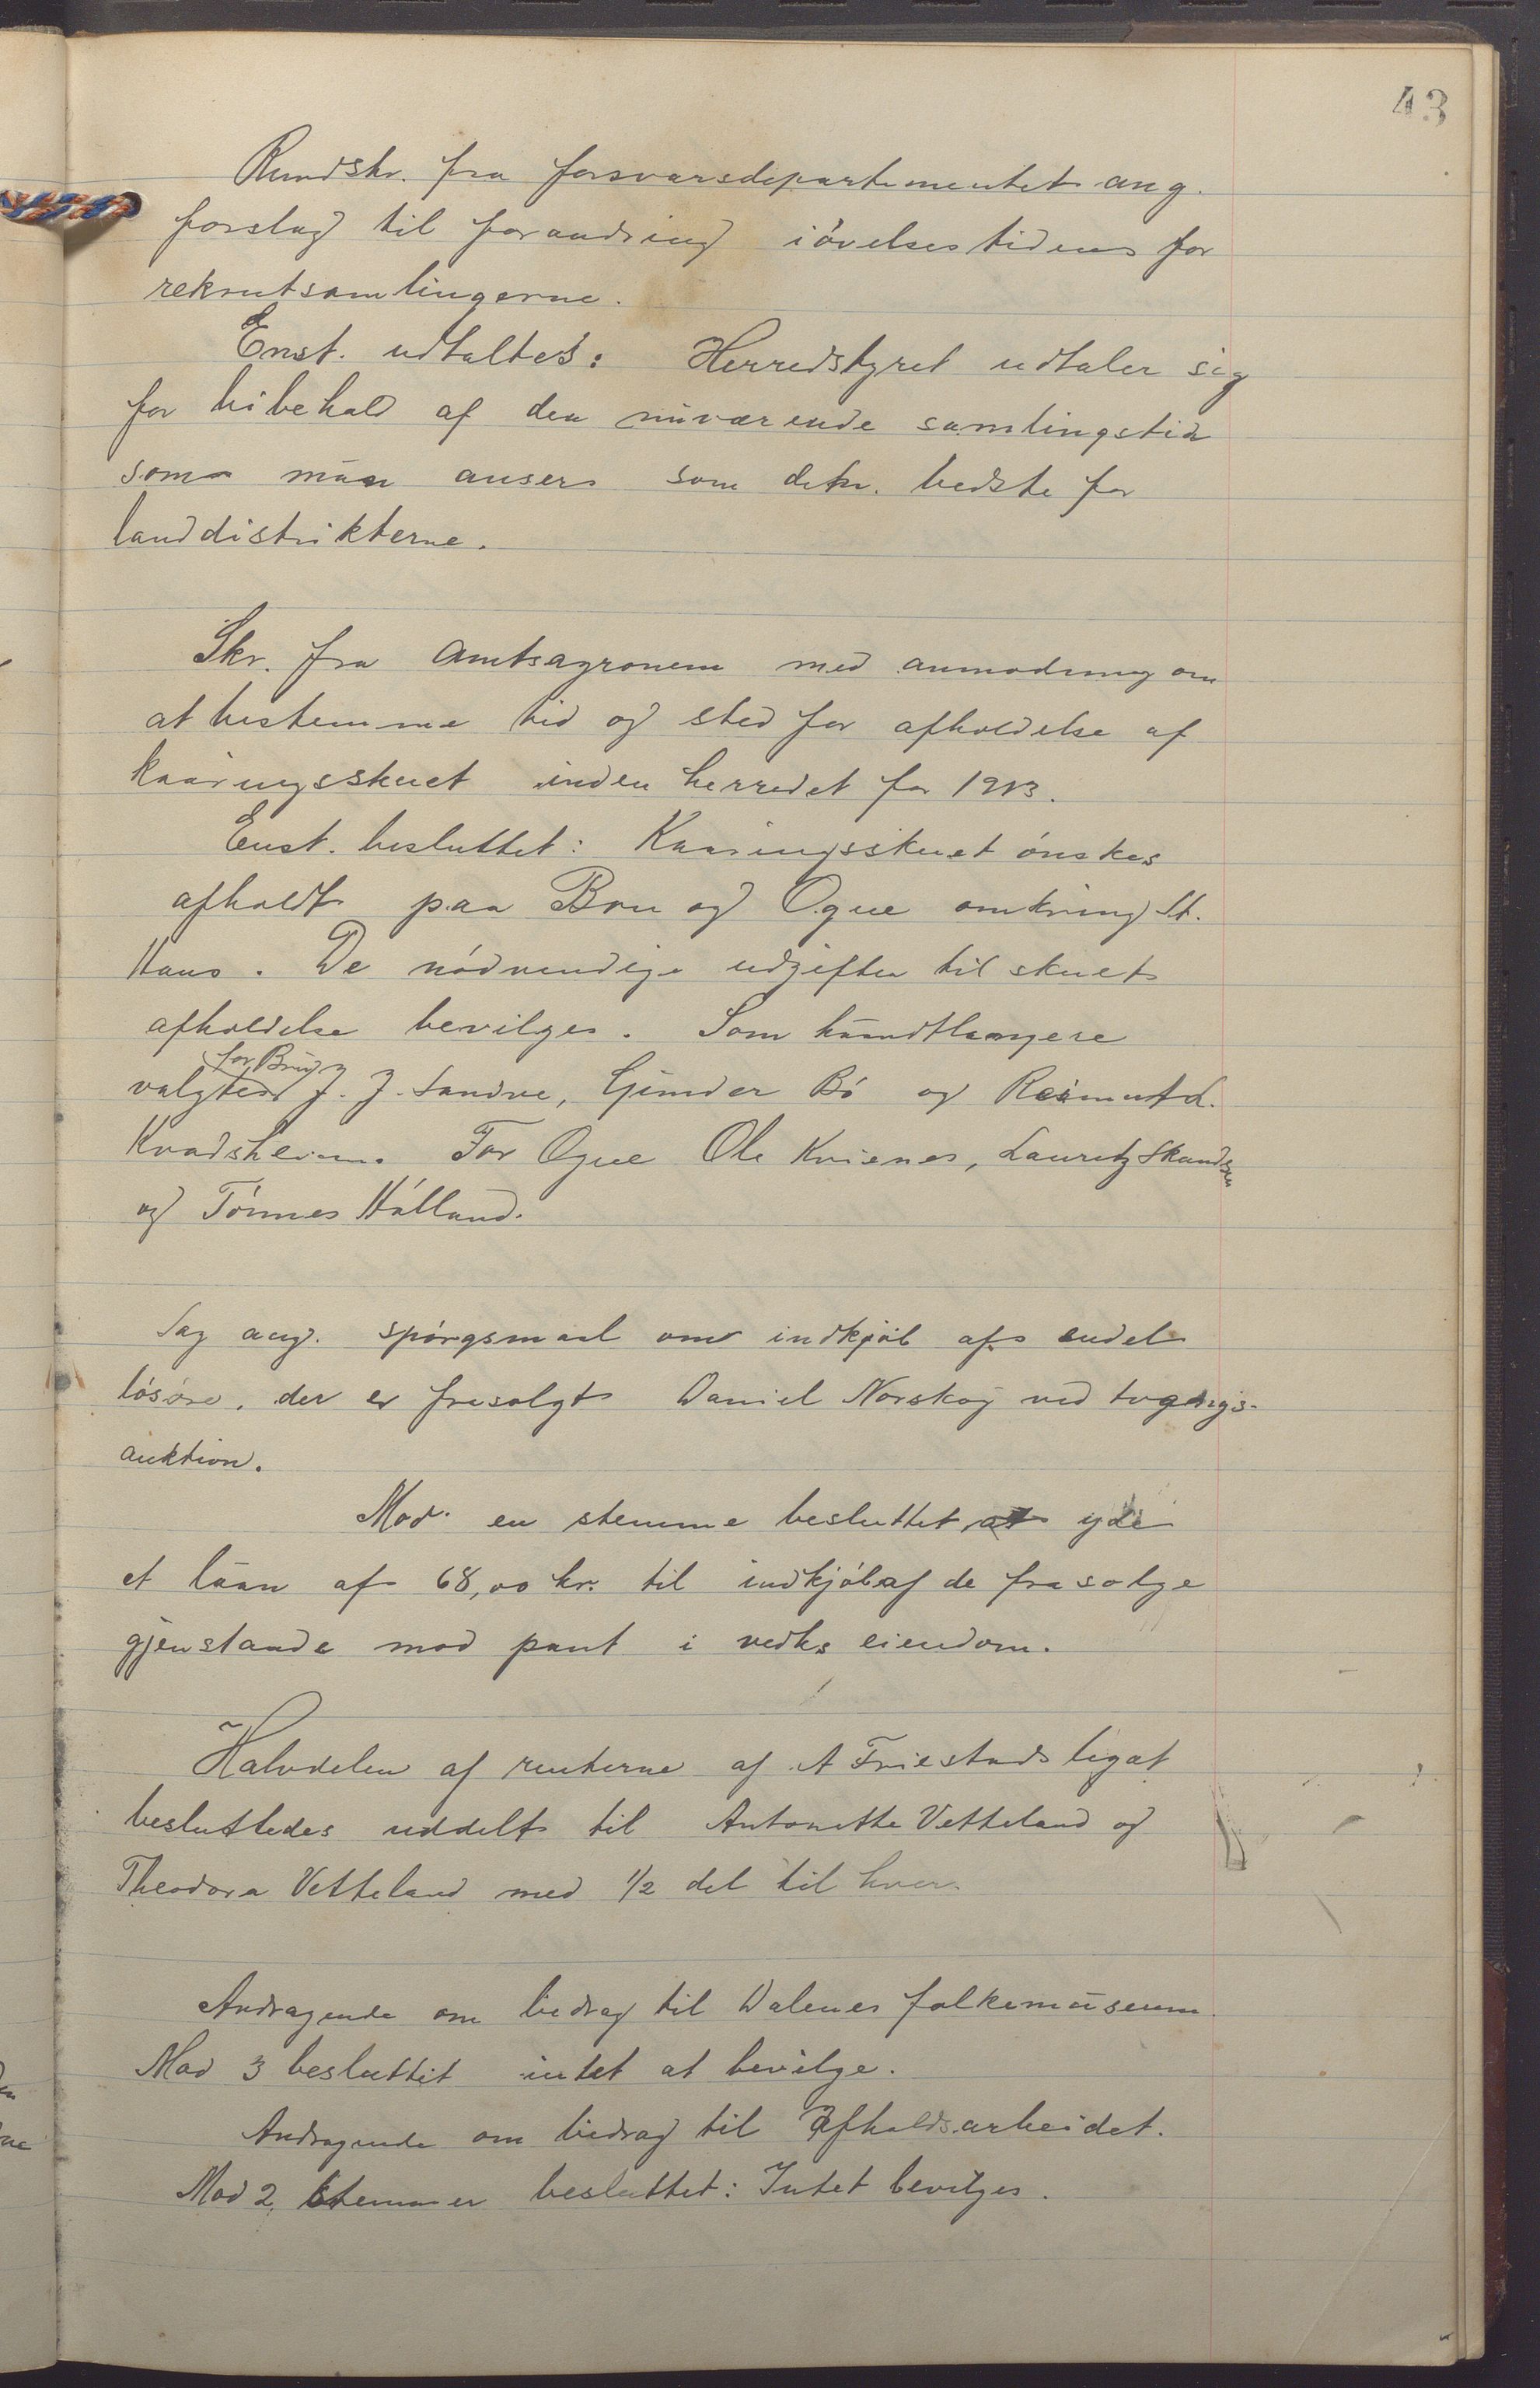 43
Rundskr. fra forsvarsdepartementet ang.
forslag til forandring i övelsestidens for
rekrutsamlingerne.
Enst. udtaltes: Herredstyret udtaler sig
for bibehold af den nuværende samlingstid
som man anser som den bedste for
landdistrikterne.
Skr. fra Amtsagronom med anmodning om
at bestemme tid og sted for afholdelse af
kaaringsskuet inden herredet for 1913.
Enst. besluttet: Kaaringsskuet ónskes
afholdt paa Bru og Ogne omkring St.
Hans. De nódvendige udgifter til skuets
afholdelse bevilges. Som haandtlangere
for Bru
valgtes J. J. Sandve, Gunder Bó og Reimert A.
Kvadsheim. For Ogne Ole Kvienes, Lauritz Skandsen
og Tónnes Hálland.
Sag ang. spórgsmaal om indkjób af endel
lósóre, der er frasolgt Daniel Norskog ved tvangs-
auktion.
Mod en stemme besluttet at yde
et laan af 68,00 kr. til indkjób af de frasolge
gjenstande mod pant i vedks eiendom.
Halvdelen af renterne af A Friestads legat
besluttedes uddelt til Antonette Vetteland og
Theodora Vetteland med 1/2 del til hver.
Andragende om bidrag til Dalenes folkemuseum.
Mod 3 besluttet intet at bevilge.
Andragende om bidrag til Afholdsarbeidet.
Mod 2 stemmer besluttet: Intet bevilges.